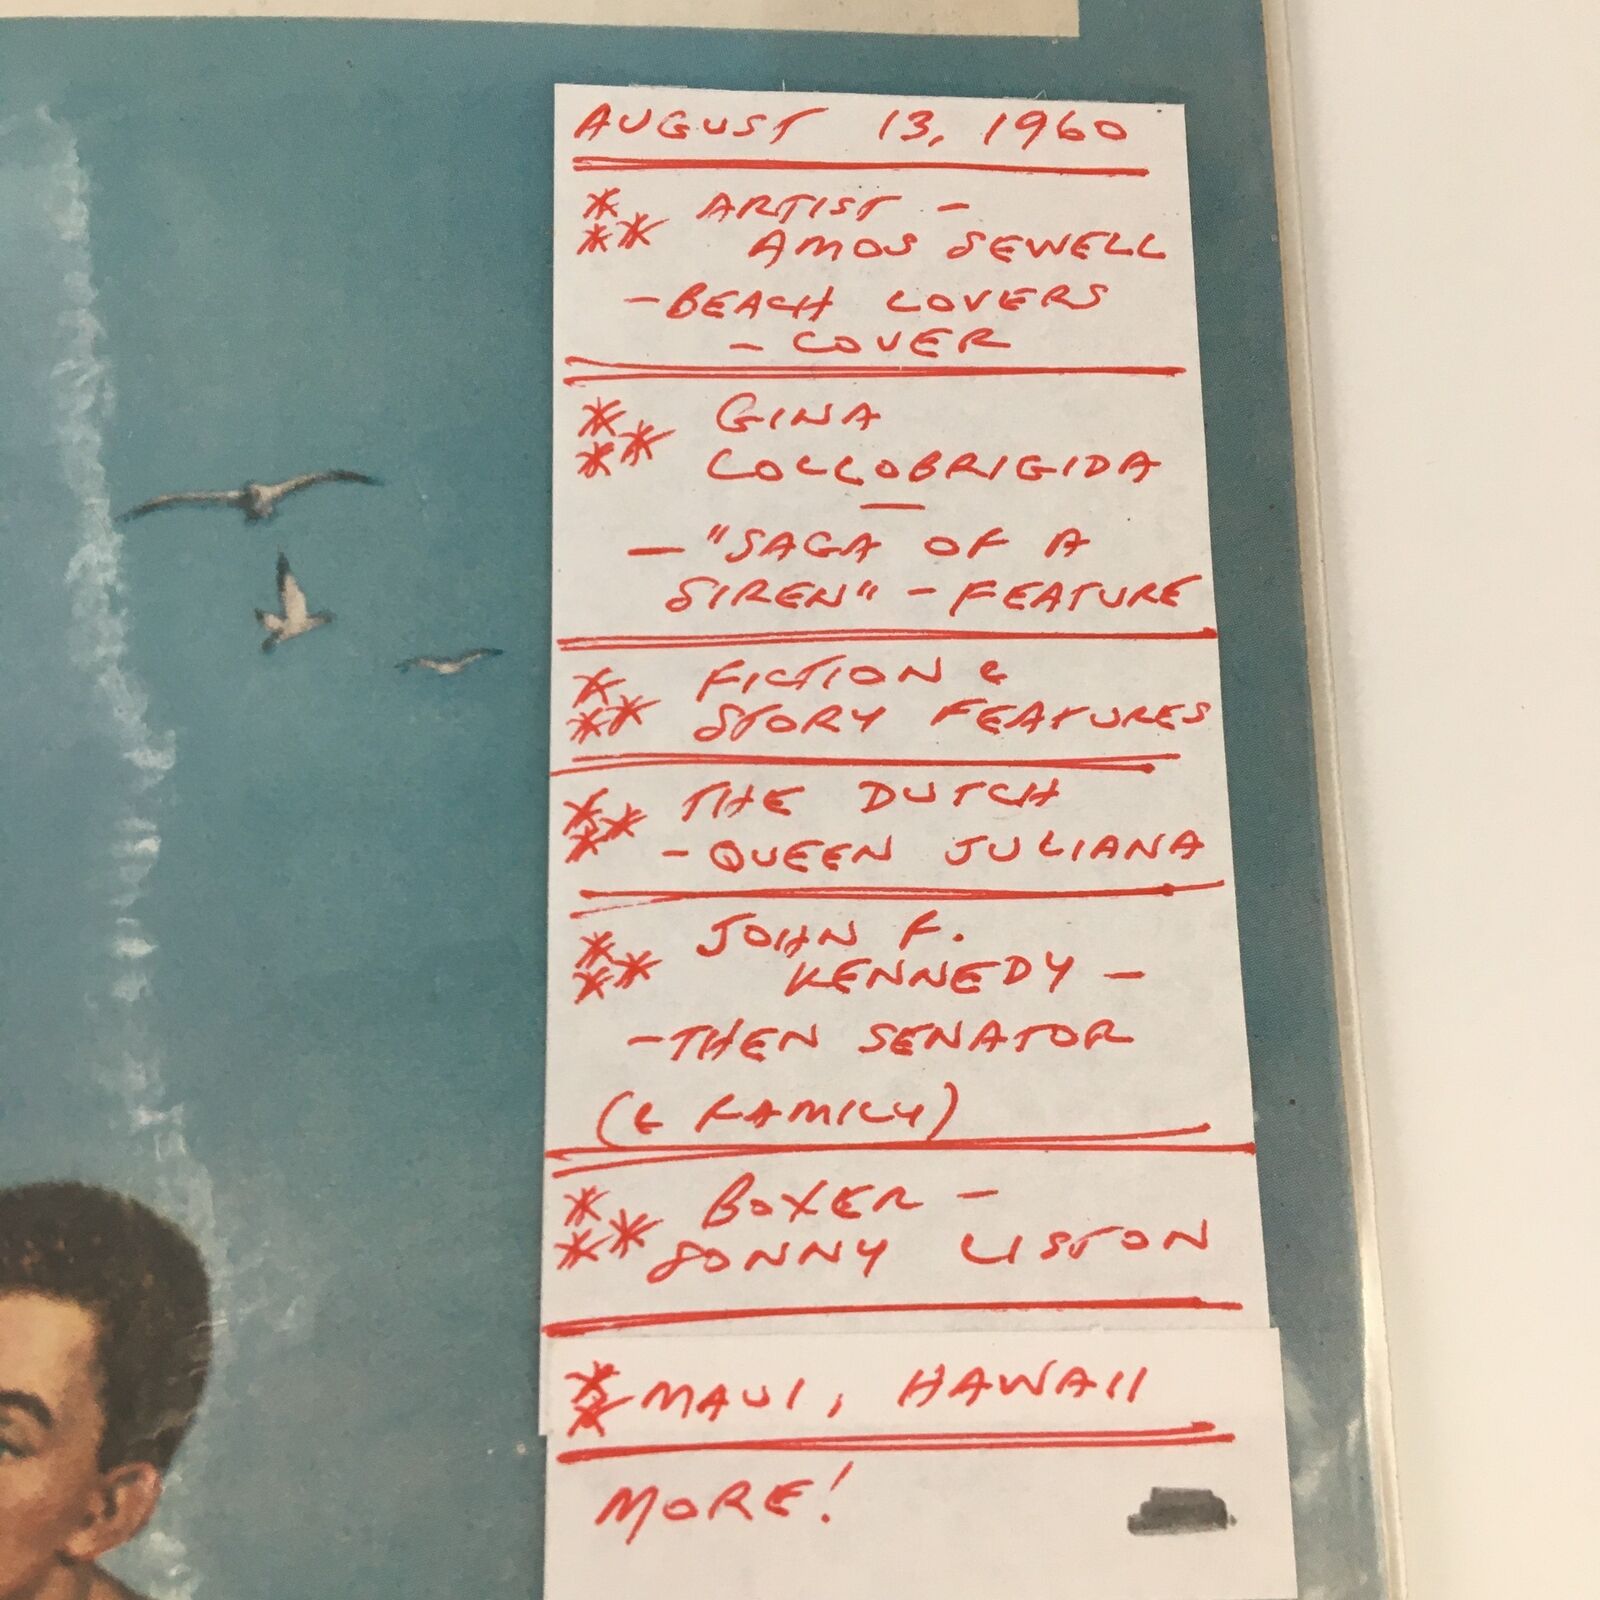 AUGUST 13, 1960
* ARTIST -
** AMOS SEWELL
- BEACH LOVERS
- COVER
* GINA
** LOLLOBRIGIDA
- "SAGA OF A
SIREN" - FEATURE
* FICTION &
** STORY FEATURES
* THE DUTCH
** - QUEEN JULIANA
* JOHN F.
** KENNEDY -
- THEN SENATOR
(& FAMILY)
* BOXER -
** SONNY LISTON
* MAUI, HAWAII
*
MORE!